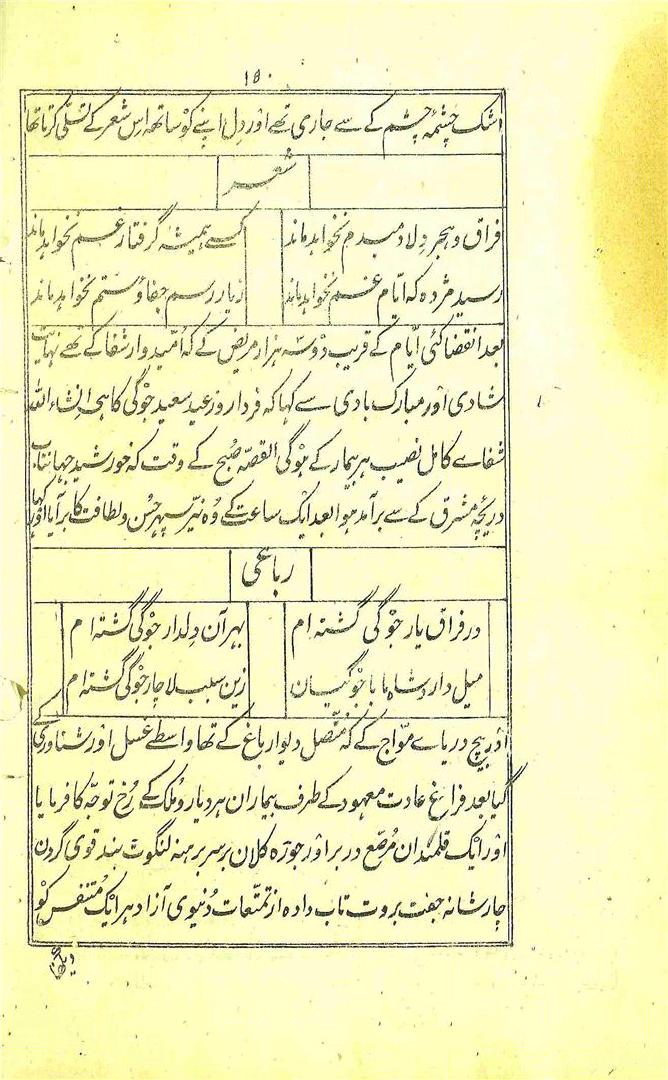 ۱۵۰
اشک چشمۂ چشم کے سے جاری تھے اور دل اپنے کو ساتھ اس شعر کے تسلّی کرتا تھا
شعر
فراق و ہجر دلا دمبدم نخواہد ماند کسے ہمیشہ گرفتار غم نخواہد ماند
رسید مژدہ کہ ایّام غم نخواہد ماند زیار رسم جفا و ستم نخواہد ماند
بعد انقضا کئی ایّام کے قریب دو سہ ہزار مریض کے کہ امّیدوار شفا کے تھے نہایت
شادی اور مبارک بادی سے کہا کہ فردا روز عید سعید جوگی کا ہی انشاء اللہ
شفاے کامل نصیب ہر بیمار کے ہوگی القصّہ صُبح کے وقت کہ خورشید جہانتاب
دریچۂ مشرق کے سے برآمد ہوا بعد ایک ساعت کے وُہ نیّر سپہر حُسن و لطافت کا بر آیا اور کہا
رباعی
در فراق یار جوگی گشتہ ام بہر آن دِلدار جوگی گشتہ ام
میل دارد شاہ ما با جوگیان زین سبب لاچار جوگی گشتہ ام
اور بیچ دریاے موّاج کے کہ مُتّصل دیوار باغ کے تھا واسطے غسل اور شناوری کے
گیا بعد فراغ عادت معہود کے طرف بیماران ہر دیار و مُلک کے رُخ توجّہ کا فرمایا
اور ایک قلمدان مُرصّع در بر اور جوڑہ کلان بر سر برہنہ لنگوٹ بند قوی گردن
چار شانہ جفت بروت تاب دادہ از تمتّعات دُنیوی آزاد ہر ایک مُتنفّس کو